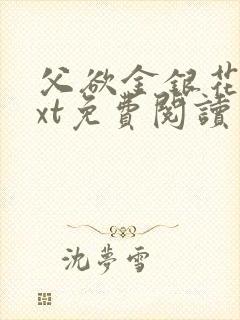 父欲金银花
xt免費閱讀
沈夢雪